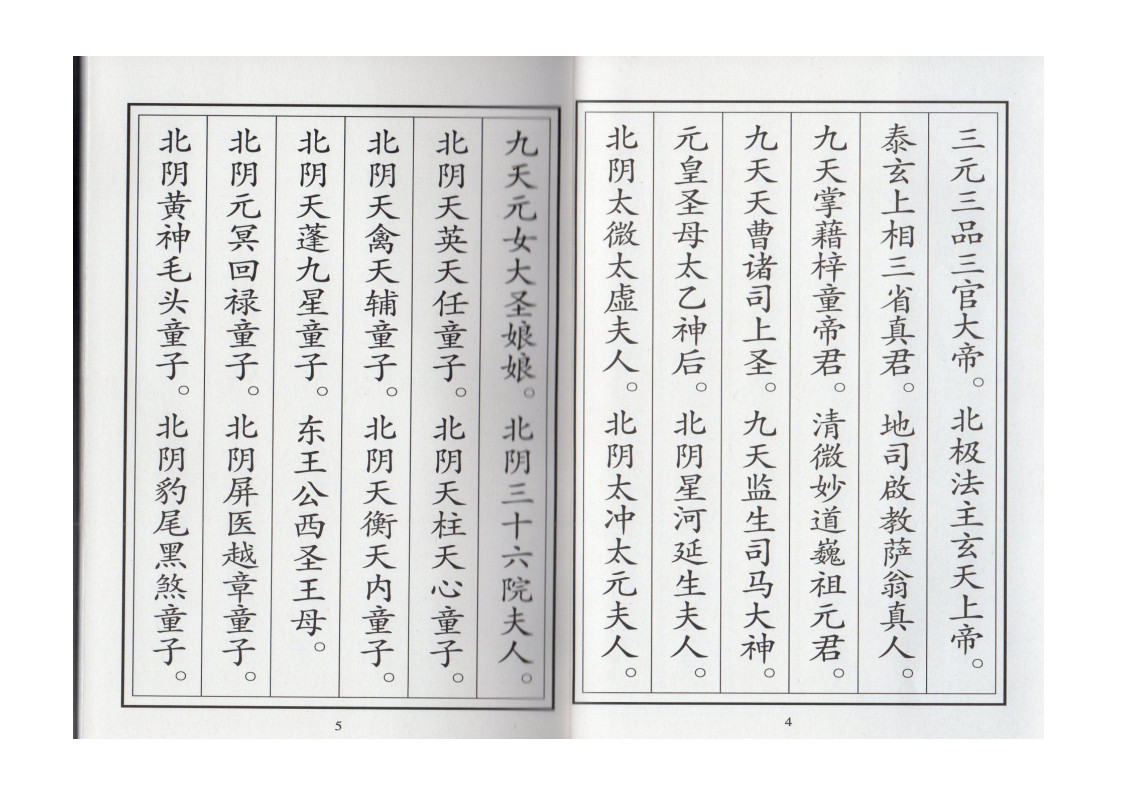 三元三品三官大帝。北极法主玄天上帝。
泰玄上相三省真君。地司啟教萨翁真人。
九天掌藉梓童帝君。清微妙道巍祖元君。
九天天曹诸司上圣。九天监生司马大神。
元皇圣母太乙神后。北阴星河延生夫人。
北阴太微太虚夫人。北阴太冲太元夫人。
4
九天元女大圣娘娘。北阴三十六院夫人。
北阴天英天任童子。北阴天柱天心童子。
北阴天禽天辅童子。北阴天衡天内童子。
北阴天蓬九星童子。东王公西圣王母。
北阴元冥回禄童子。北阴屏医越章童子。
北阴黄神毛头童子。北阴豹尾黑煞童子。
5